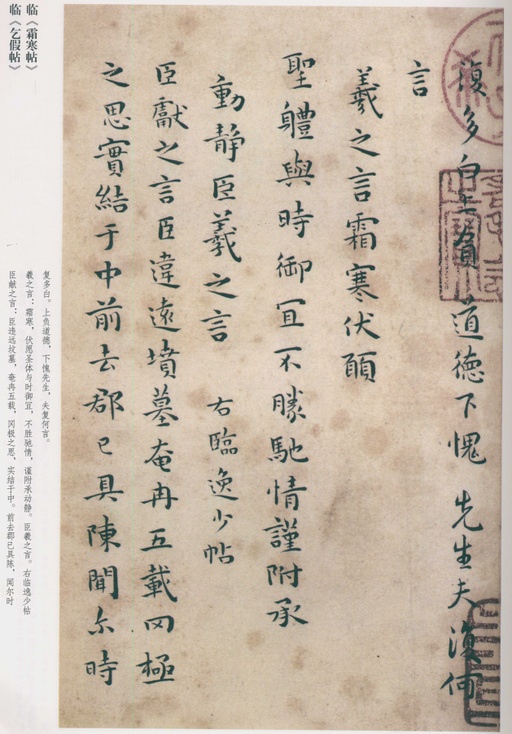 復多白上負 道德下愧 先生夫復何
言
羲之言霜寒伏願
聖體與時御宜不勝馳情謹附承
動静臣羲之言 右臨逸少帖
臣獻之言臣違遠墳墓奄冉五載罔極
之思實結于中前去郡已具陳聞尔時
临《霜寒帖》
临《乞假帖》
复多白。上负道德，下愧先生，夫复何言。
羲之言：霜寒，伏愿圣体与时御宜，不胜驰情，谨附承动静。臣羲之言。右临逸少帖
臣献之言：臣违远坟墓，奄冉五载，罔极之思，实结于中。前去郡已具陈，闻尔时